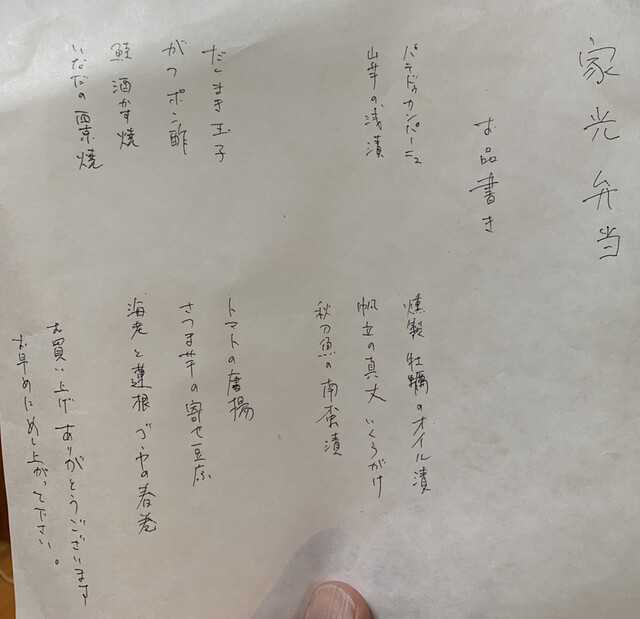 家光弁当
お品書き
パテドゥカンパーニュ
山芋の浅漬
だしまき玉子
がつポン酢
鮭酒かす焼
いなだの西京焼
燻製牡蠣のオイル漬
帆立の真丈いくらがけ
秋刀魚の南蛮漬
トマトの唐揚
さつま芋の寄せ豆腐
海老と蓮根ゴーヤの春巻
お買い上げありがとうございます
お早めにめし上がって下さい。